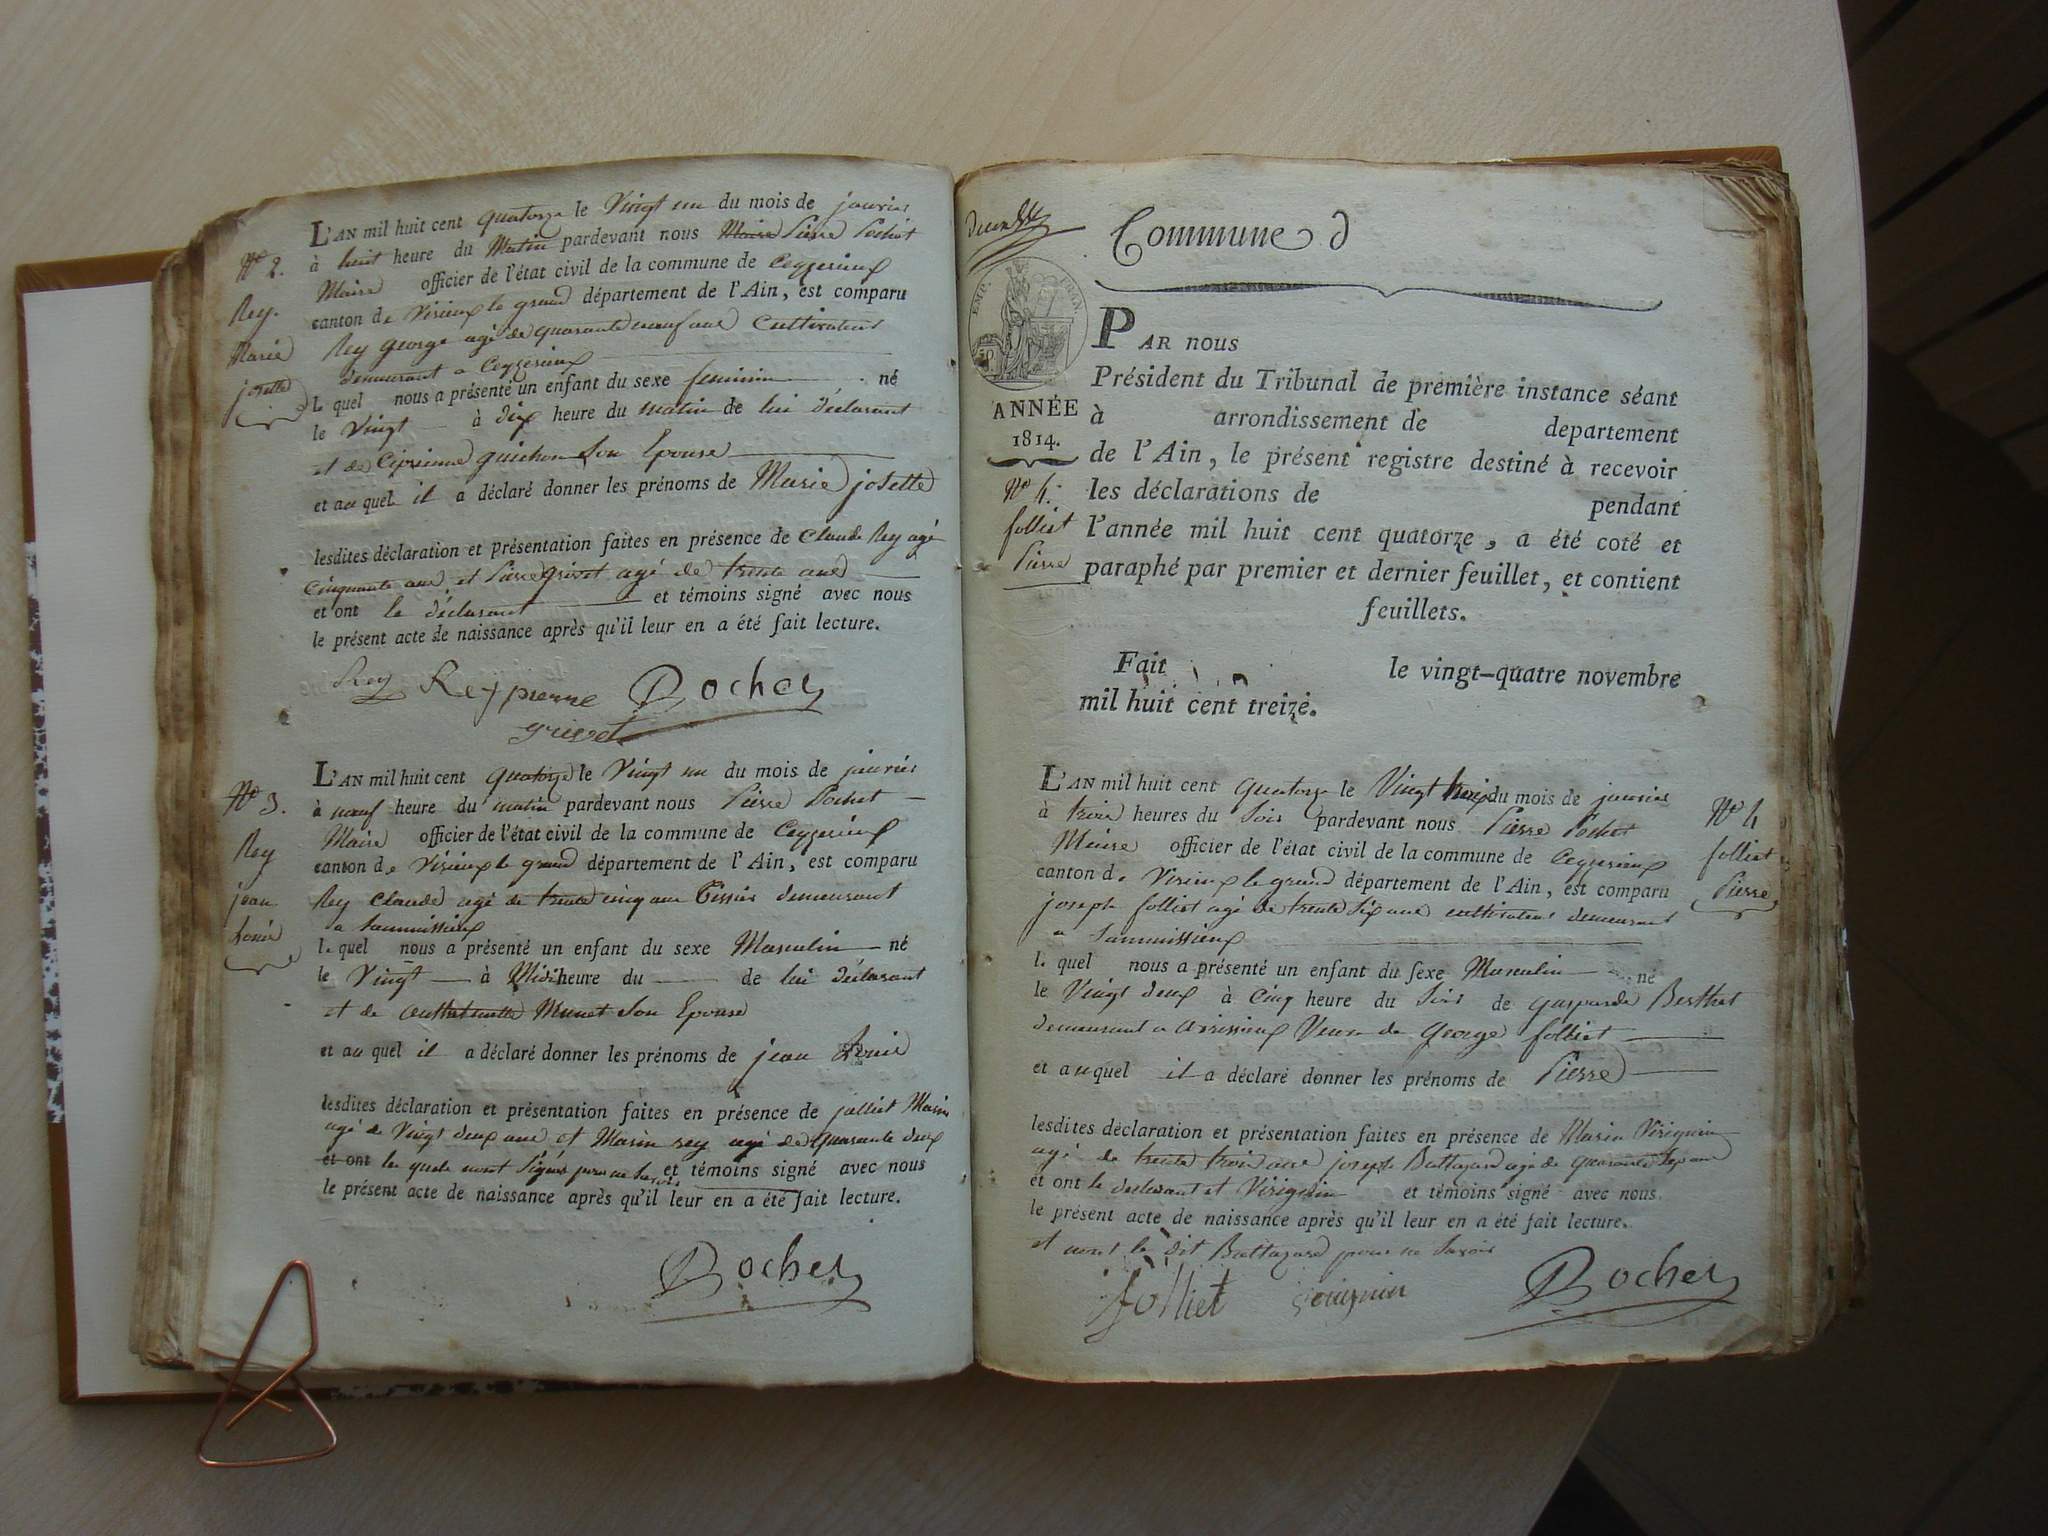 L'AN mil huit cent quatorze le Vingt un du mois de janvier
N° 2.
à huit heure du Matin pardevant nous Maire Pierre Pochet
Maire officier de l'état civil de la commune de Ceyzerieux
Rey.
canton de Virieux le grand département de l'Ain, est comparu
Marie
Rey george agé de quarante neuf ans Cultivateur
demeurant a Ceyzerieux
josette
L quel nous a présenté un enfant du sexe feminin né
le Vingt à dix heure du matin de lui déclarant
et de guichon Son Epouse
et au quel il a déclaré donner les prénoms de Marie josette
lesdites déclaration et présentation faites en présence de Claude Rey agé
Cinquante ans et Pierre grivet agé de trente ans
et ont le déclarant et témoins signé avec nous
le présent acte de naissance après qu'il leur en a été fait lecture.
Rey Rey pierre Pochet
grivet
L'AN mil huit cent quatorze le Vingt un du mois de janvier
N° 3.
à neuf heure du matin pardevant nous Pierre Pochet
Maire officier de l'état civil de la commune de Ceyzerieux
Rey
canton de Virieux le grand département de l'Ain, est comparu
jean
Rey Claude agé de trente cinq ans Tissier demeurant
a
Louis
le quel nous a présenté un enfant du sexe Masculin né
le Vingt à Midi heure du de lui déclarant
et de Son Epouse
et au quel il a déclaré donner les prénoms de jean Louis
lesdites déclaration et présentation faites en présence de jolliet Marin
agé de Vingt deux ans et Marin rey agé de quarante deux
et ont les quels nont Signé pour ne et témoins signé avec nous
le présent acte de naissance après qu'il leur en a été fait lecture.
Pochet
Commune d
EMP.
50
PAR nous
Président du Tribunal de première instance séant
ANNÉE
à arrondissement de departement
1814.
de l'Ain, le présent registre destiné à recevoir
N° 4.
les déclarations de pendant
folliet
l'année mil huit cent quatorze, a été coté et
Pierre
paraphé par premier et dernier feuillet, et contient
feuillets.
Fait le vingt-quatre novembre
mil huit cent treize.
L'AN mil huit cent quatorze le Vingt trois du mois de janvier
N° 4
à trois heures du Soir pardevant nous Pierre Pochet
Maire officier de l'état civil de la commune de Ceyzerieux
folliet
canton de Virieux le grand département de l'Ain, est comparu
Pierre
joseph folliet agé de trente Six ans cultivateur demeurant
a
le quel nous a présenté un enfant du sexe Masculin né
le Vingt deux à Cinq heure du Soir de gasparde Berthet
demeurant a Veuve de George folliet
et auquel il a déclaré donner les prénoms de Pierre
lesdites déclaration et présentation faites en présence de Marin
agé de trente trois ans joseph Baltazard agé de quarante Sept ans
et ont le déclarant et et témoins signé avec nous
le présent acte de naissance après qu'il leur en a été fait lecture.
et nont le dit Baltazard pour ne Savoir
folliet Pochet